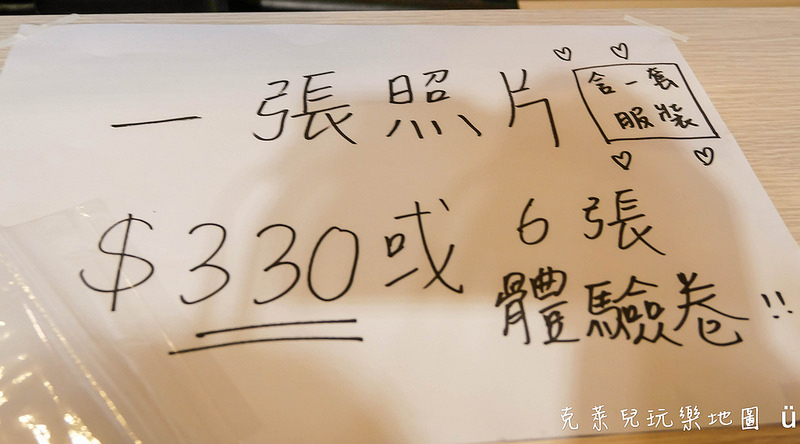 一張照片
含一套
服裝
$330或6張
體驗卷!!
克萊兒玩樂地圖 ü